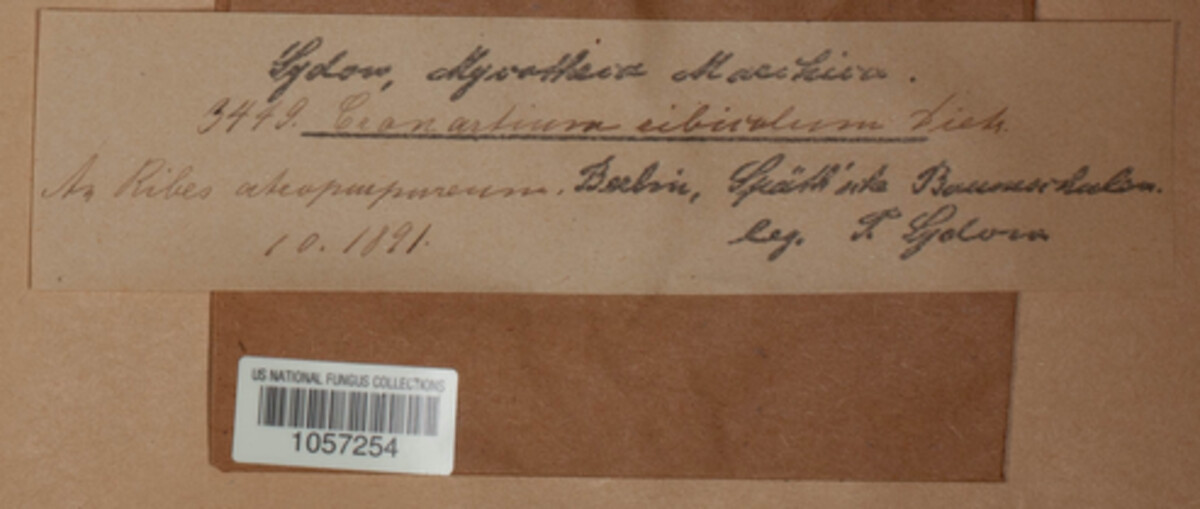 Sydow, Mycotheca Marchica.
3449. Cronartium ribicolum Diet.
An Ribes atropurpureum. Berlin, Späth'sche Baumschulen.
10. 1891. leg. P. Sydow
US NATIONAL FUNGUS COLLECTIONS
1057254